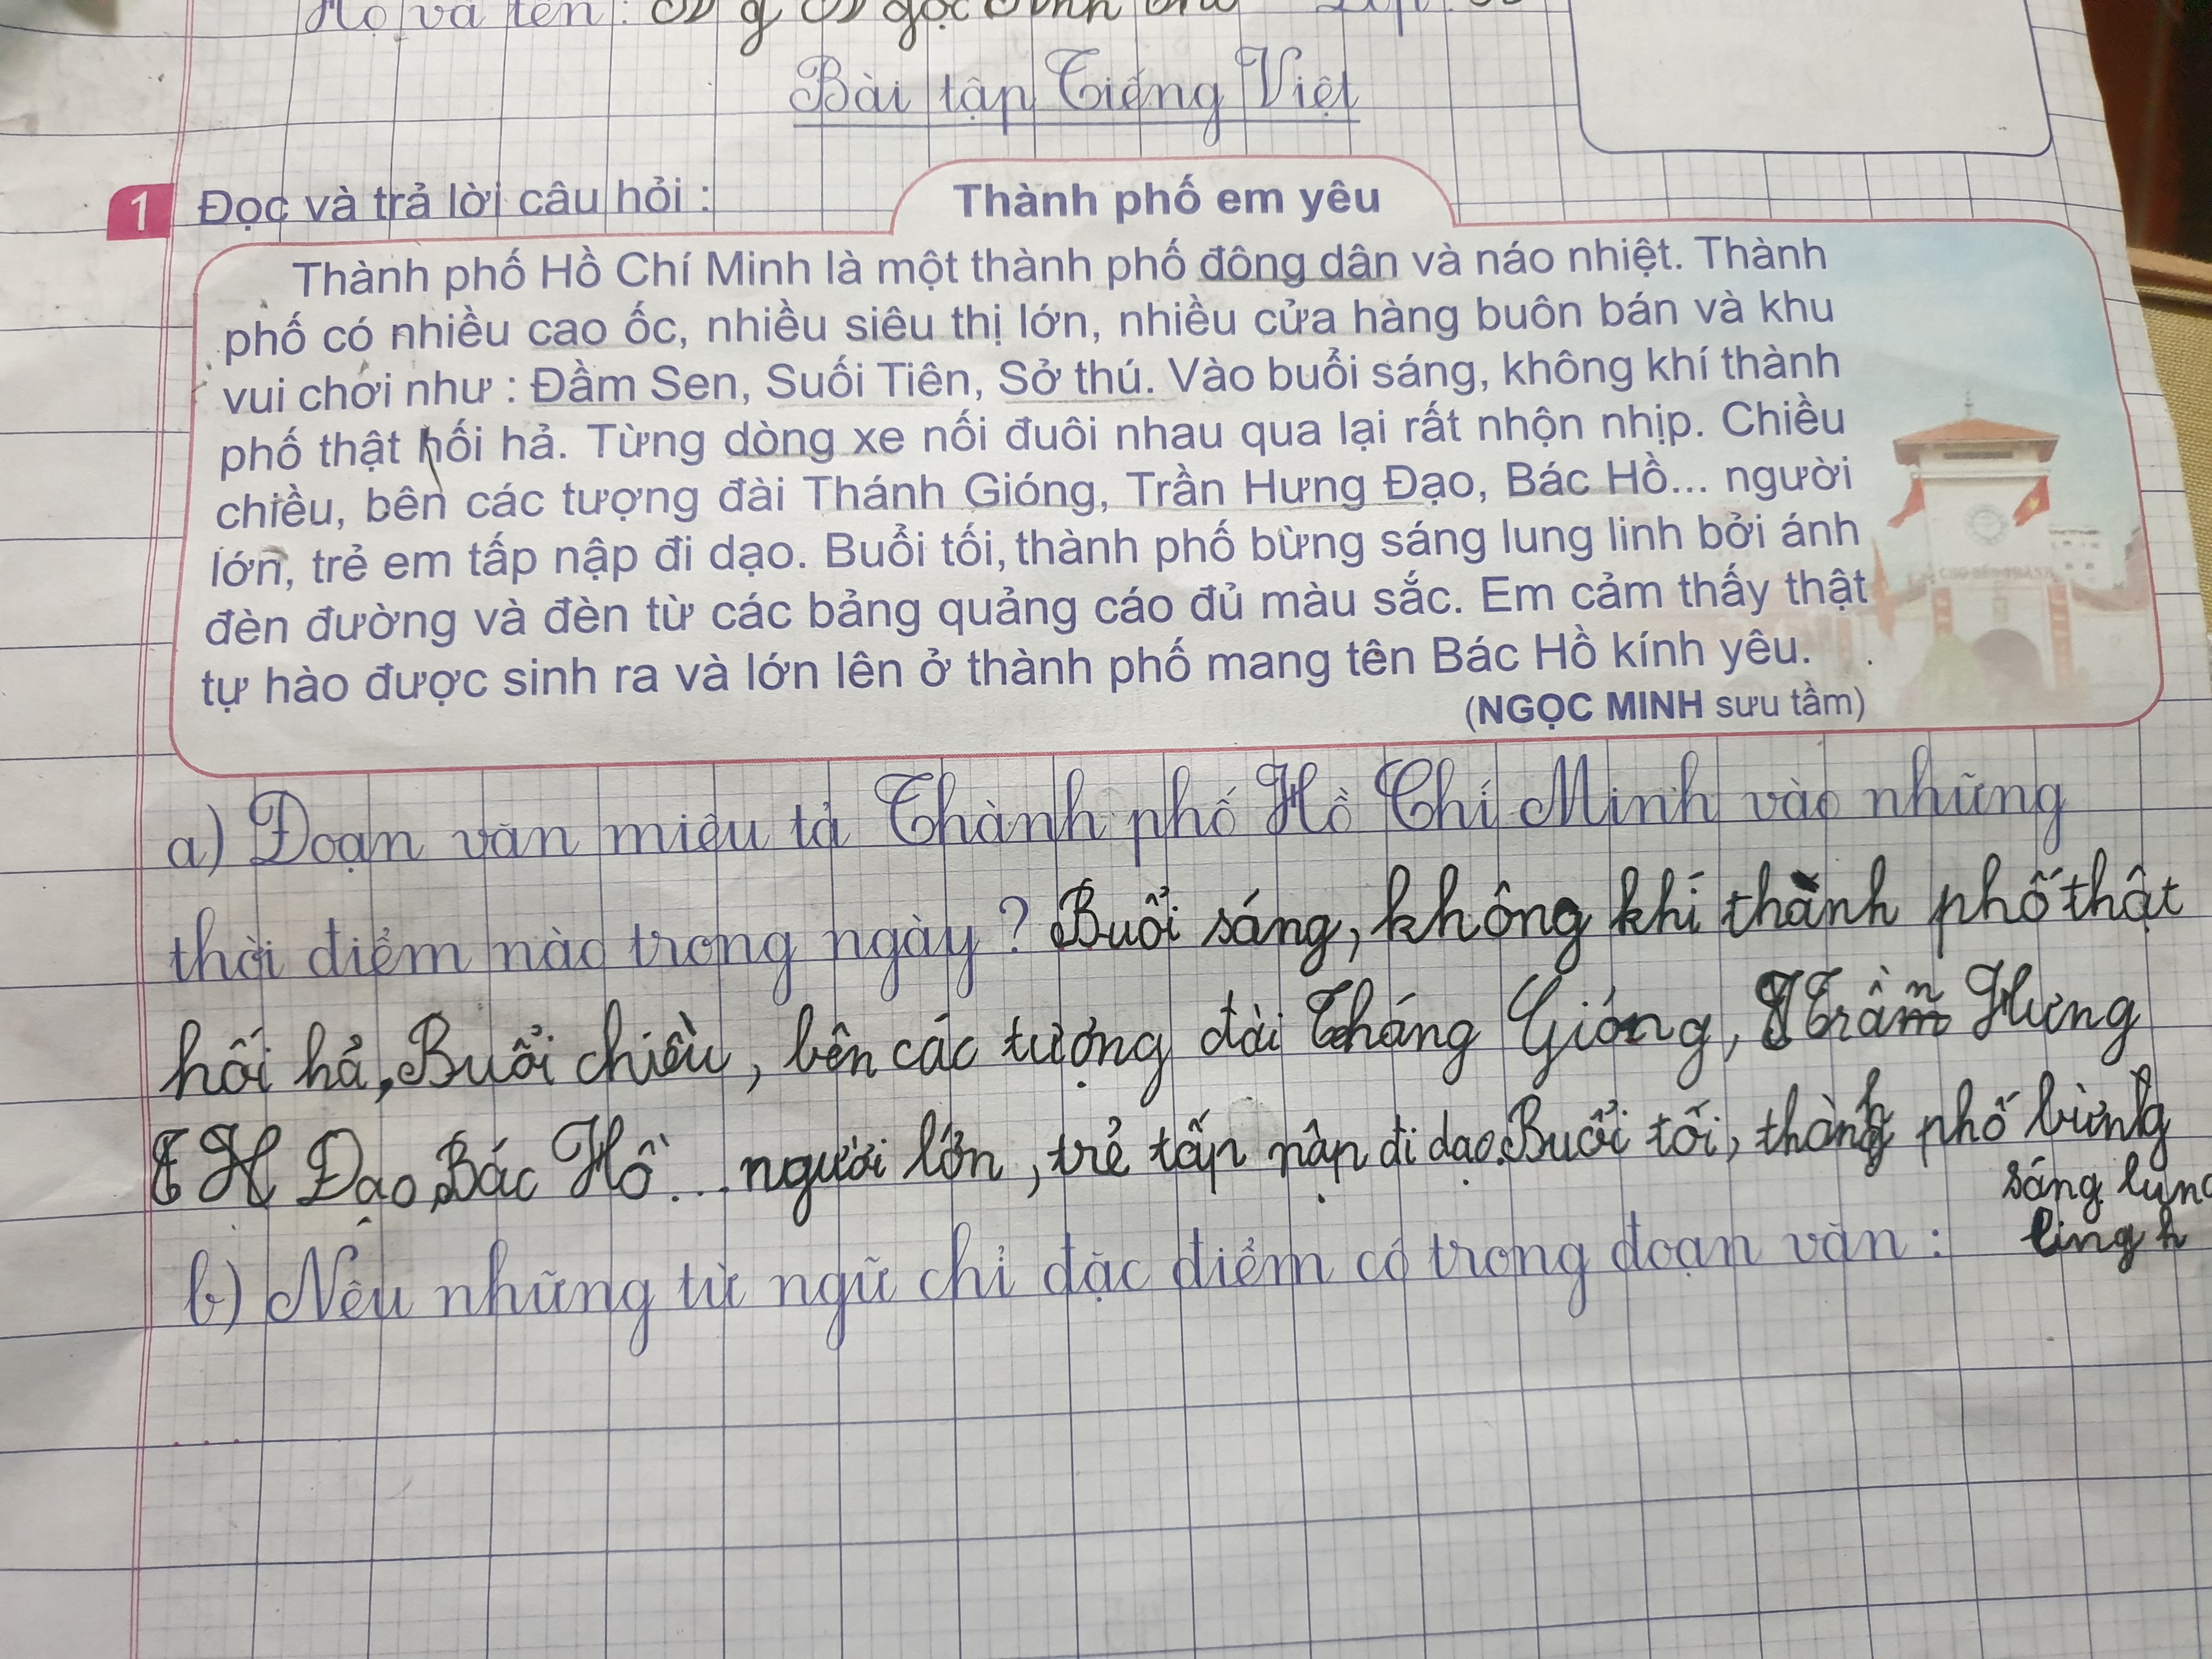 Họ và tên:
Bài tập Tiếng Việt
1 Đọc và trả lời câu hỏi :
Thành phố em yêu
Thành phố Hồ Chí Minh là một thành phố đông dân và náo nhiệt. Thành
phố có nhiều cao ốc, nhiều siêu thị lớn, nhiều cửa hàng buôn bán và khu
vui chơi như : Đầm Sen, Suối Tiên, Sở thú. Vào buổi sáng, không khí thành
phố thật hối hả. Từng dòng xe nối đuôi nhau qua lại rất nhộn nhịp. Chiều
chiều, bên các tượng đài Thánh Gióng, Trần Hưng Đạo, Bác Hồ... người
lớn, trẻ em tấp nập đi dạo. Buổi tối, thành phố bừng sáng lung linh bởi ánh
đèn đường và đèn từ các bảng quảng cáo đủ màu sắc. Em cảm thấy thật
tự hào được sinh ra và lớn lên ở thành phố mang tên Bác Hồ kính yêu.
(NGỌC MINH sưu tầm)
a) Đoạn văn miêu tả Thành phố Hồ Chí Minh vào những
thời điểm nào trong ngày? Buổi sáng, không khí thành phố thật
hối hả, Buổi chiều, bên các tượng đài Tháng Gióng, Trần Hưng
Đạo, Bác Hồ... người lớn, trẻ tấp nập đi dạo. Buổi tối, thành phố bừng
sáng lung
lingh
b) Nêu những từ ngữ chỉ đặc điểm có trong đoạn văn :
...